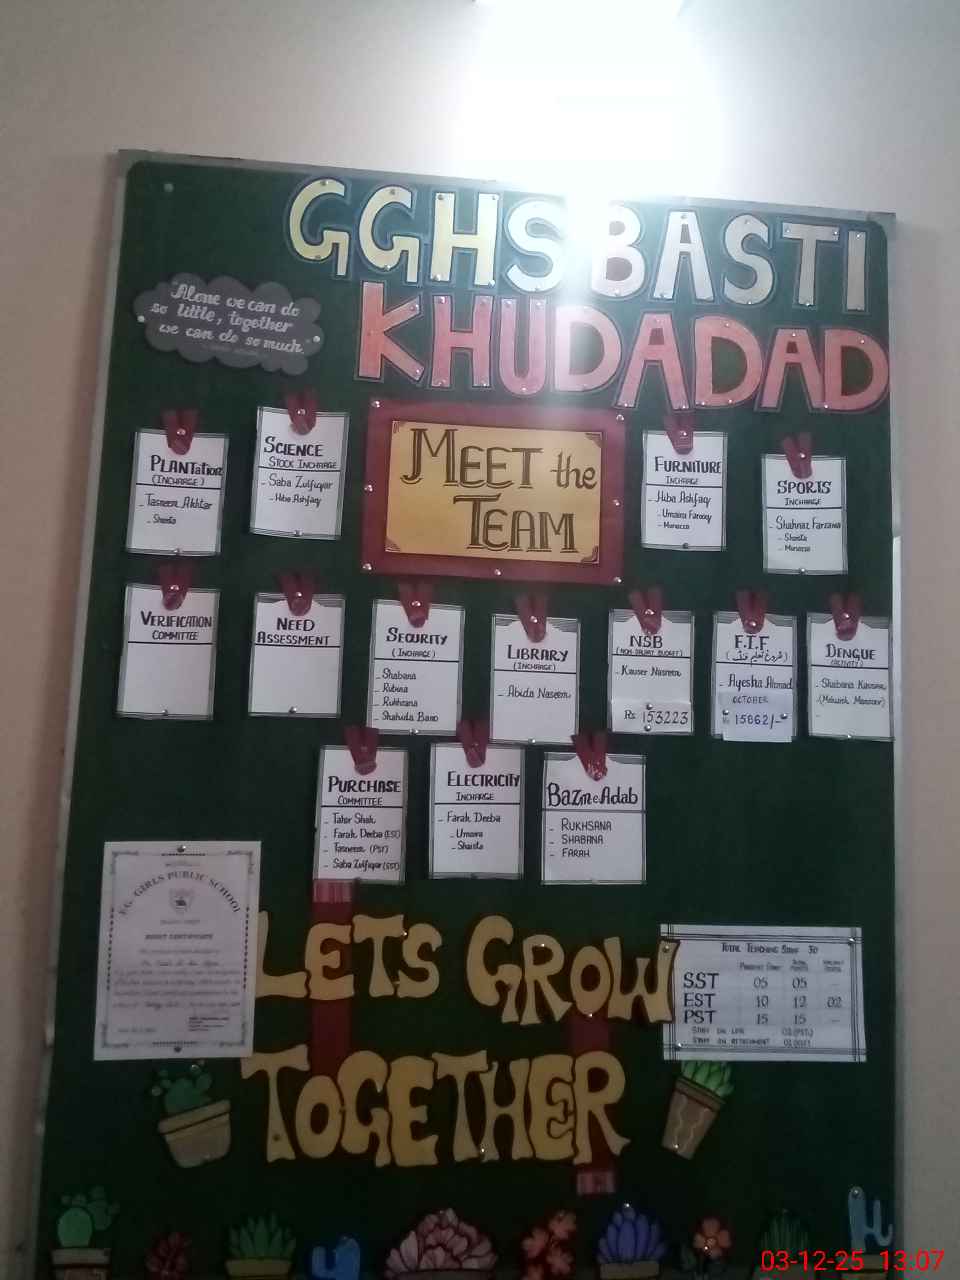 GGHS BASTI
KHUDADAD
"Alone we can do
so little, together
we can do so much."
MEET the
TEAM
PLANTation
(INCHARGE)
- Tasneem Akhtar
- Shaista
SCIENCE
STOCK INCHARGE
- Saba Zulfiqar
- Hiba Ashfaq
FURNITURE
INCHARGE
- Hiba Ashfaq
- Umaira Farooq
SPORTS
INCHARGE
- Shahnaz Farzana
- Shaista
VERIFICATION
COMMITTEE
NEED
ASSESSMENT
SECURITY
(INCHARGE)
- Shabana
- Rubina
- Rukhsana
- Shahida Bano
LIBRARY
(INCHARGE)
- Abida Naseem
NSB
(NON-SALARY BUDGET)
- Kauser Nasreen
Rs 153223
F.T.F
(فروغ تعلیم فنڈ)
- Ayesha Ahmad
OCTOBER
Rs 15862/-
DENGUE
(ACTIVITY)
- Shabana Kausar
(Mehwish Manzoor)
-
PURCHASE
COMMITTEE
- Tahir Shah
- Farah Deeba (EST)
- Tasneem (PST)
- Saba Zulfiqar (SST)
ELECTRICITY
INCHARGE
- Farah Deeba
- Umaira
- Shaista
Bazm e Adab
- RUKHSANA
- SHABANA
- FARAH
F.G. GIRLS PUBLIC SCHOOL
MERIT CERTIFICATE
LETS GROW
TOGETHER
TOTAL TEACHING STAFF 30
PRESENT STAFF TOTAL POSTS VACANT POSTS
SST 05 05 -
EST 10 12 02
PST 15 15 -
STAFF ON
STAFF ON ATTACHMENT
03-12-25 13:07